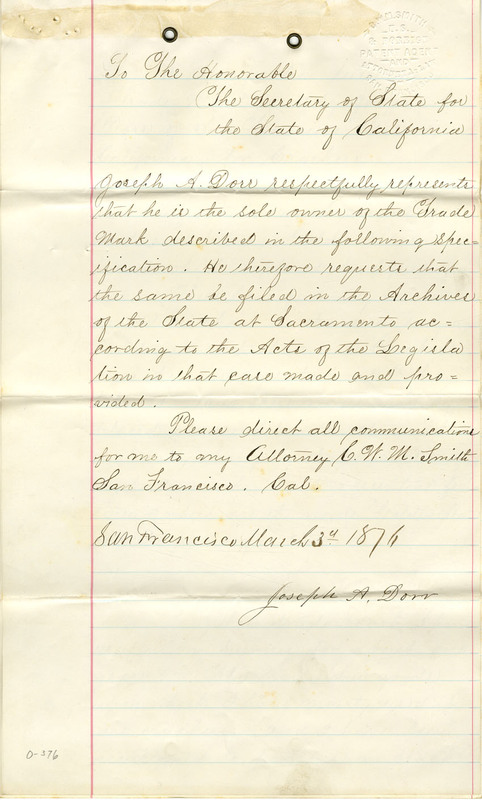 C.W.M. SMITH
U.S.
& FOREIGN
PATENT AGENT
AND
To The Honorable
The Secretary of State for
the State of California
Joseph A. Dorr respectfully represents
that he is the sole owner of the Trade
Mark described in the following spec=
ification. He therefore requests that
the same be filed in the Archives
of the State at Sacramento ac=
cording to the Acts of the Legisla
tion in that case made and pro=
vided.
Please direct all communications
for me to my Attorney C. W. M. Smith
San Francisco. Cal.
San Francisco March 3d 1876
Joseph A. Dorr
D-376